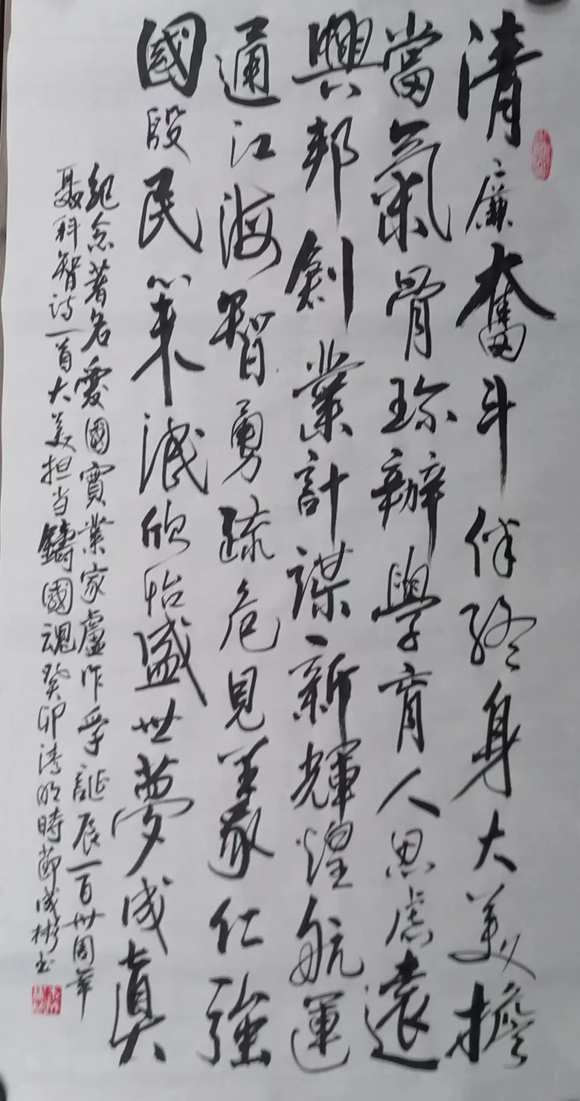 清廉奮斗伴終身大美擔
當氣骨珍辦學育人思慮遠
興邦創業計謀新輝煌航運
通江海智勇疏危見義仁強
國殷民策泯欣怡盛世夢成真
紀念著名愛國實業家盧作孚誕辰一百卅周年
聂科智诗一首大美担当鑄國魂癸卯清明時節成彬书